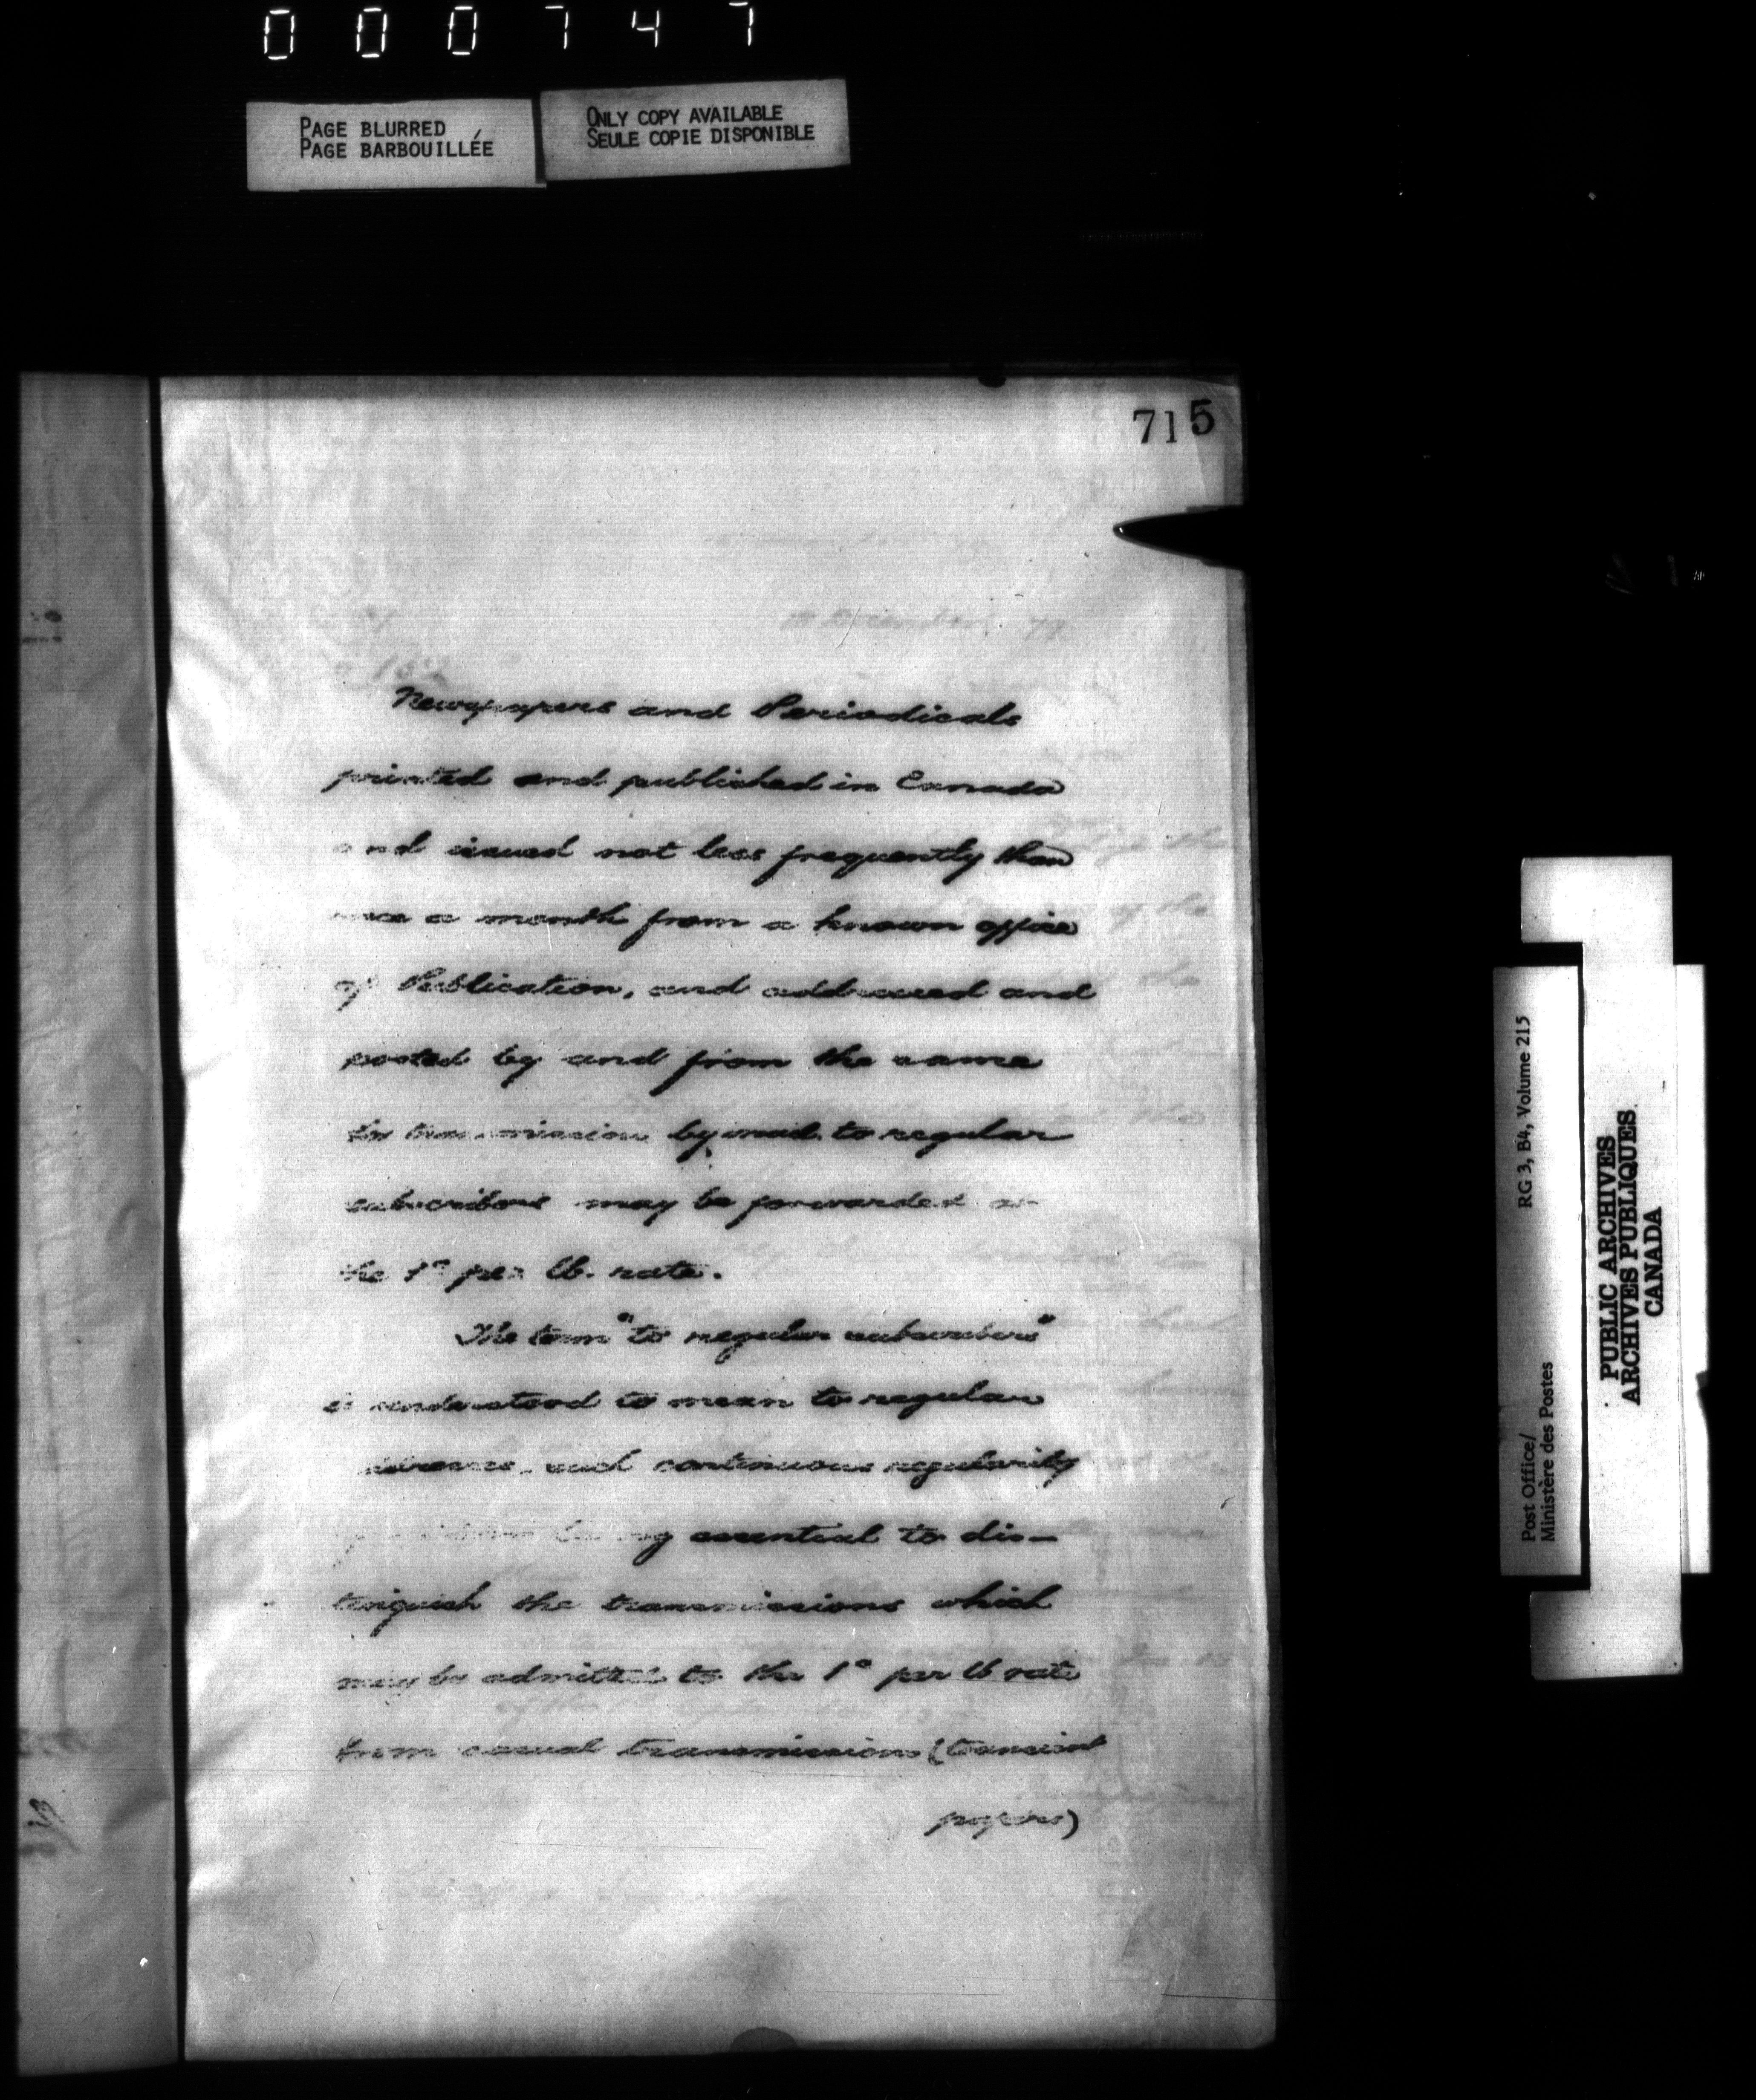 000747
PAGE BLURRED
PAGE BARBOUILLÉE
ONLY COPY AVAILABLE
SEULE COPIE DISPONIBLE
715
Newspapers and Periodicals
printed and published in Canada
and issued not less frequently than
once a month from a known office
of Publication, and addressed and
posted by and from the same
for transmission by mail to regular
subscribers may be forwarded at
the 1c per lb. rate.
The term "to regular subscribers"
is understood to mean to regular
and continuous regularity
being essential to dis-
tinguish the transmissions which
may be admitted to the 1c per lb rate
from casual transmissions (transient
papers)
RG 3, B4, Volume 215
Post Office/
Ministère des Postes
PUBLIC ARCHIVES
ARCHIVES PUBLIQUES
CANADA